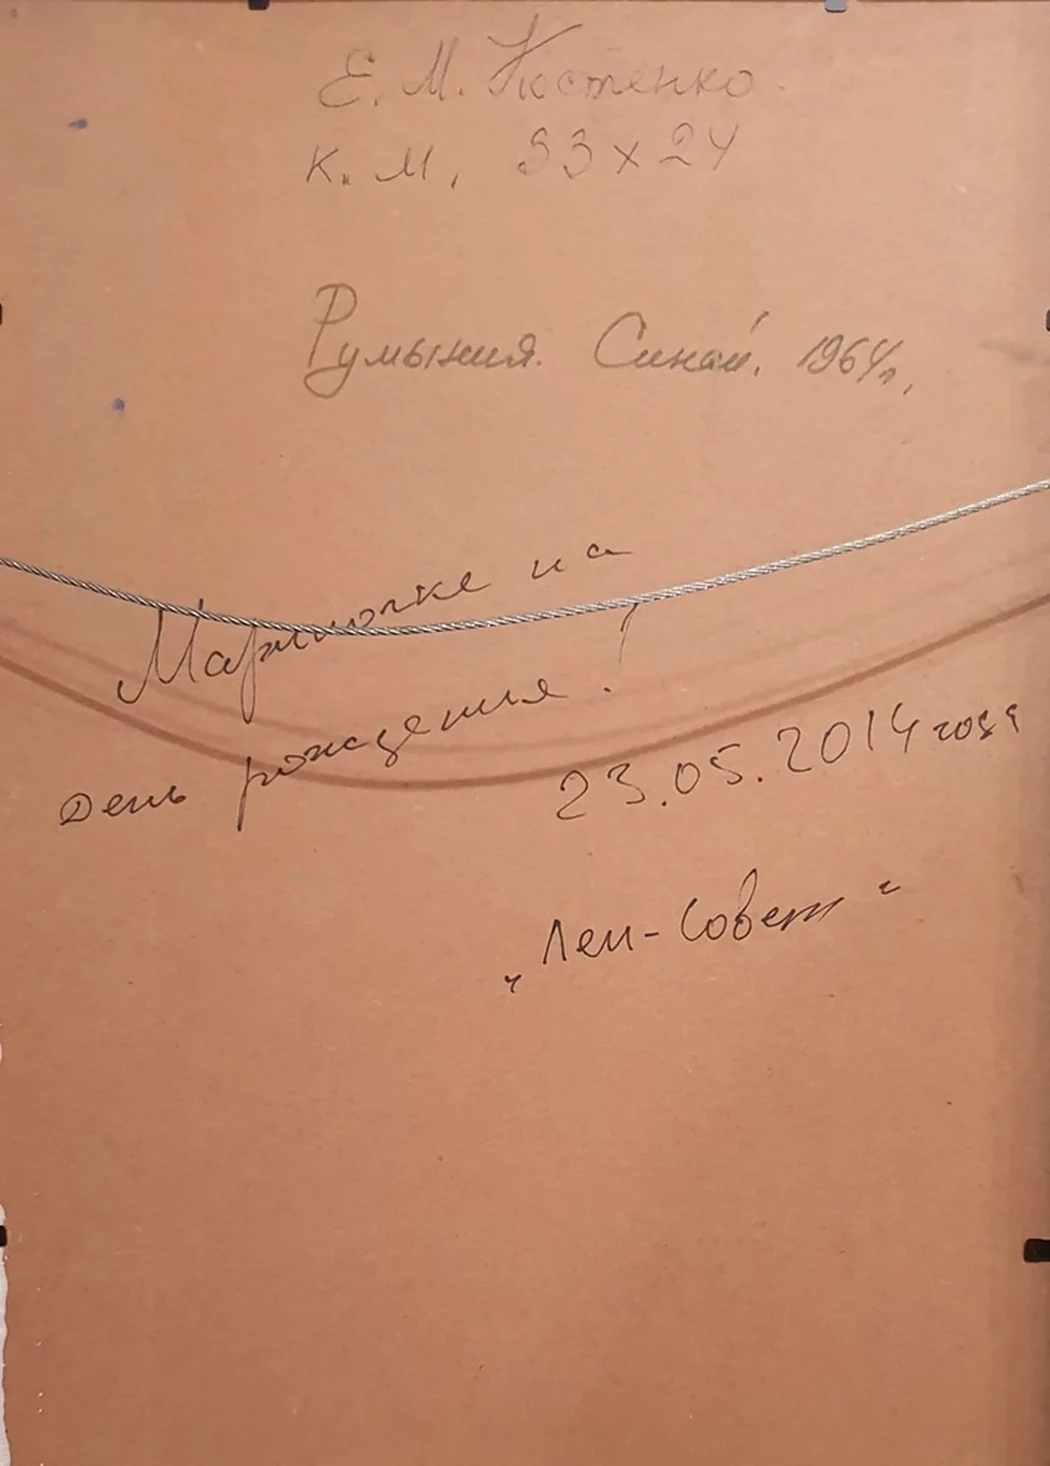 Е. М. Костенко.
К. М. 33 х 24
Румыния. Синай. 1964г.
Мариночке на
день рождения!
23.05.2014 года
„Лен-Совет“